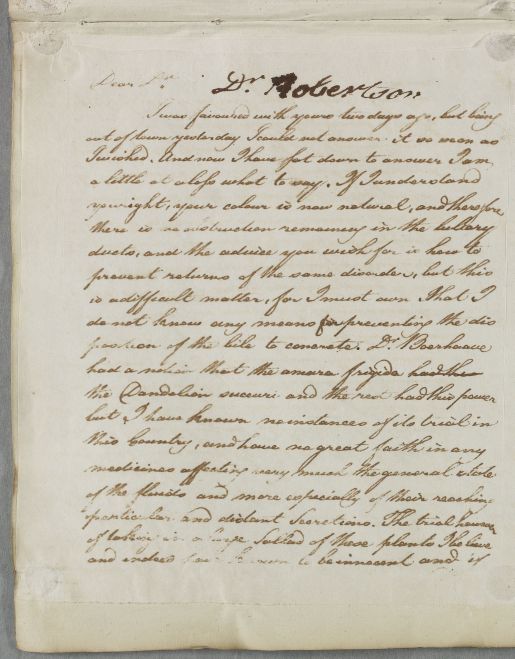 Dr Robertson
Dear Sr
I was favoured with yours two days ago, but being
out of town yesterday I could not answer it so soon as
I wished. And now I have set down to answer I am
a little at a loss what to say. If I understand
you right, your colour is now natural, and therefore
there is no obstruction remaining in the biliary
ducts, and the advice you wish for is how to
prevent returns of the same disorder, but this
is a difficult matter, for I must own that I
do not know any means for preventing the dis
position of the bile to concrete. Dr Boerhaave
had a notion that the amara frigida had this
the Dandelion succuri and the rest had this power
but I have known no instances of its trial in
this Country, and have no great faith in any
medicines affecting very much the general state
of the fluids and more especially of their reaching
particular and distant Secretions. The trial however
of taking in a large Sallad of these plants I believe
and indeed known to be innocent and if